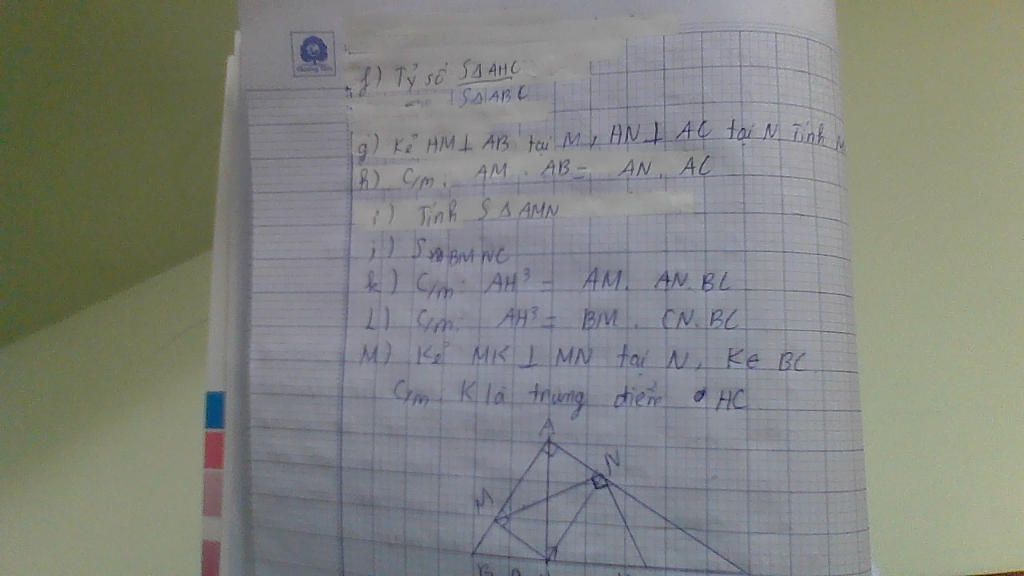 f) Tỷ số SΔAHC
SΔABC
g) Kẻ HM⊥ AB tại M, HN⊥ AC tại N Tính M
h) C/m: AM . AB = AN . AC
i) Tính SΔAMN
j) S BMNC
k) C/m: AH³ = AM. AN. BC
L) C/m: AH³ = BM . CN. BC
M) Kẻ MK ⊥ MN tại N, K∈ BC
C/m K là trung điểm HC
A
N
M
B